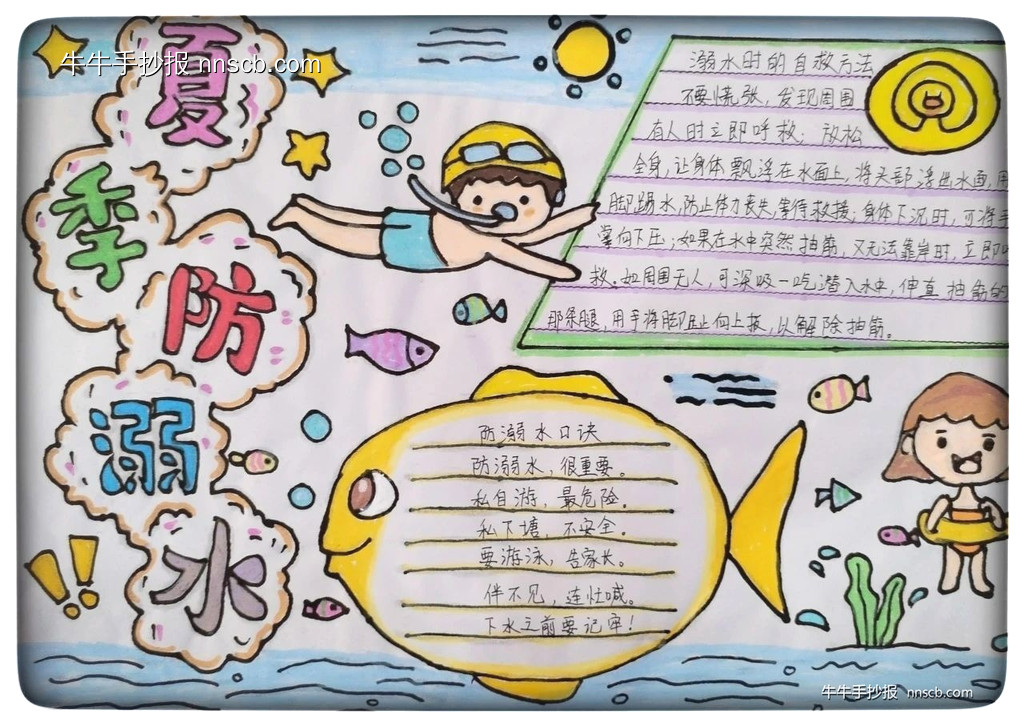 牛牛手抄报 nnscb.com
夏
季
防
溺
水
!!
溺水时的自救方法
不要慌张,发现周围
有人时立即呼救;放松
全身,让身体飘浮在水面上,将头部浮出水面,用
脚踢水,防止体力丧失,等待救援;身体下沉时,可将手
掌向下压;如果在水中突然抽筋,又无法靠岸时,立即
救。如周围无人,可深吸一吃潜入水中,伸直抽筋的
那条腿,用手将脚趾向上扳,以解除抽筋。
防溺水口诀
防溺水,很重要。
私自游,最危险。
私下塘,不安全。
要游泳,告家长。
伴不见,连忙喊。
下水之前要记牢!
牛牛手抄报 nnscb.com